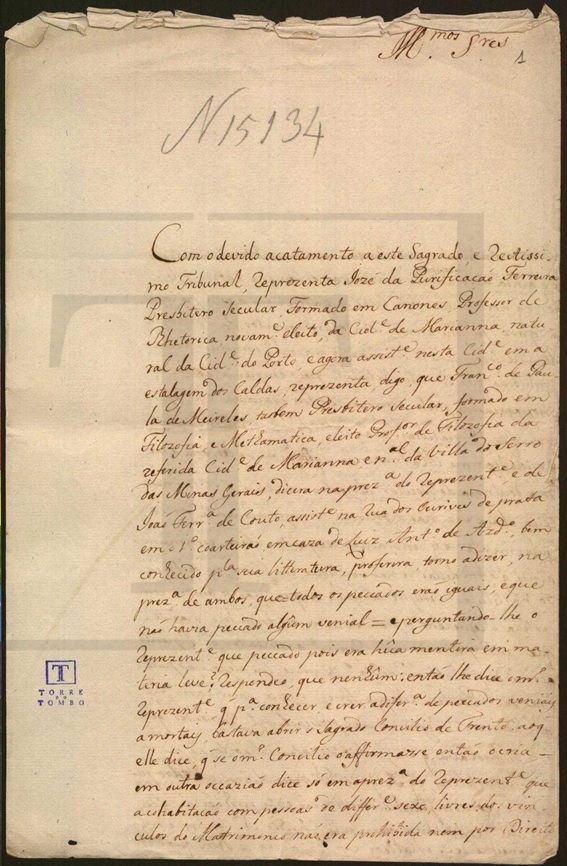 M.mos S.res 1
N 15134
Com o devido acatamento a este Sagrado, e Rectissi-
mo Tribunal, Reprezenta Jozé da Purificação Ferreira
Presbitero Secular, Formado em Canones, Professor de
Rhetorica novam.e eleito, da Cid.e de Marianna natu
ral da Cid.e do Porto e agora assist.e nesta Cid.e em a
estalagem dos Caldas, reprezenta, digo, que Fran.co de Pau-
la de Meireles tambem Presbitero Secular, formado em
Filozofia, e Mathamatica, eleito Profes.or de Filozofia da
referida Cid.e de Marianna e n.al da Villa do Serro
das Minas Gerais, dicera na prez.a do Reprezent.e e de
Joaõ Ferr.a de Couto, assist.e na Rua dos Ourivis de prata
em 1.o coarteiraõ em caza de Luiz Ant.o de Azd.o, bem
conhecido p.la sua litteratura, proferira, torno adizer, na
prez.a de ambos, que todos os peccados eraõ iguais, e que
naõ havia peccado algũm venial = e perguntando-lhe o
Reprezent.e que peccado pois era hũa mentira em ma-
tiria leve? Respondeo, que nenhũm: entaõ lhe dice o m.mo
Reprezent.e q p.a conhecer e crer a difer.a de pecados veniaes
a mortais, bastava abrir o Sagrado Concilio de Trento, ao q
elle dice, q se o m.mo Concilio o affirmasse entaõ o cria -
em outra occaziaõ dice só em a prez.a do Reprezent.e que
a cohabitaçaõ com pessoas de differ.e sexo, livres dos vin
culos do Matrimonio, naõ era prohibida nem por Direito
TORRE
DO
TOMBO